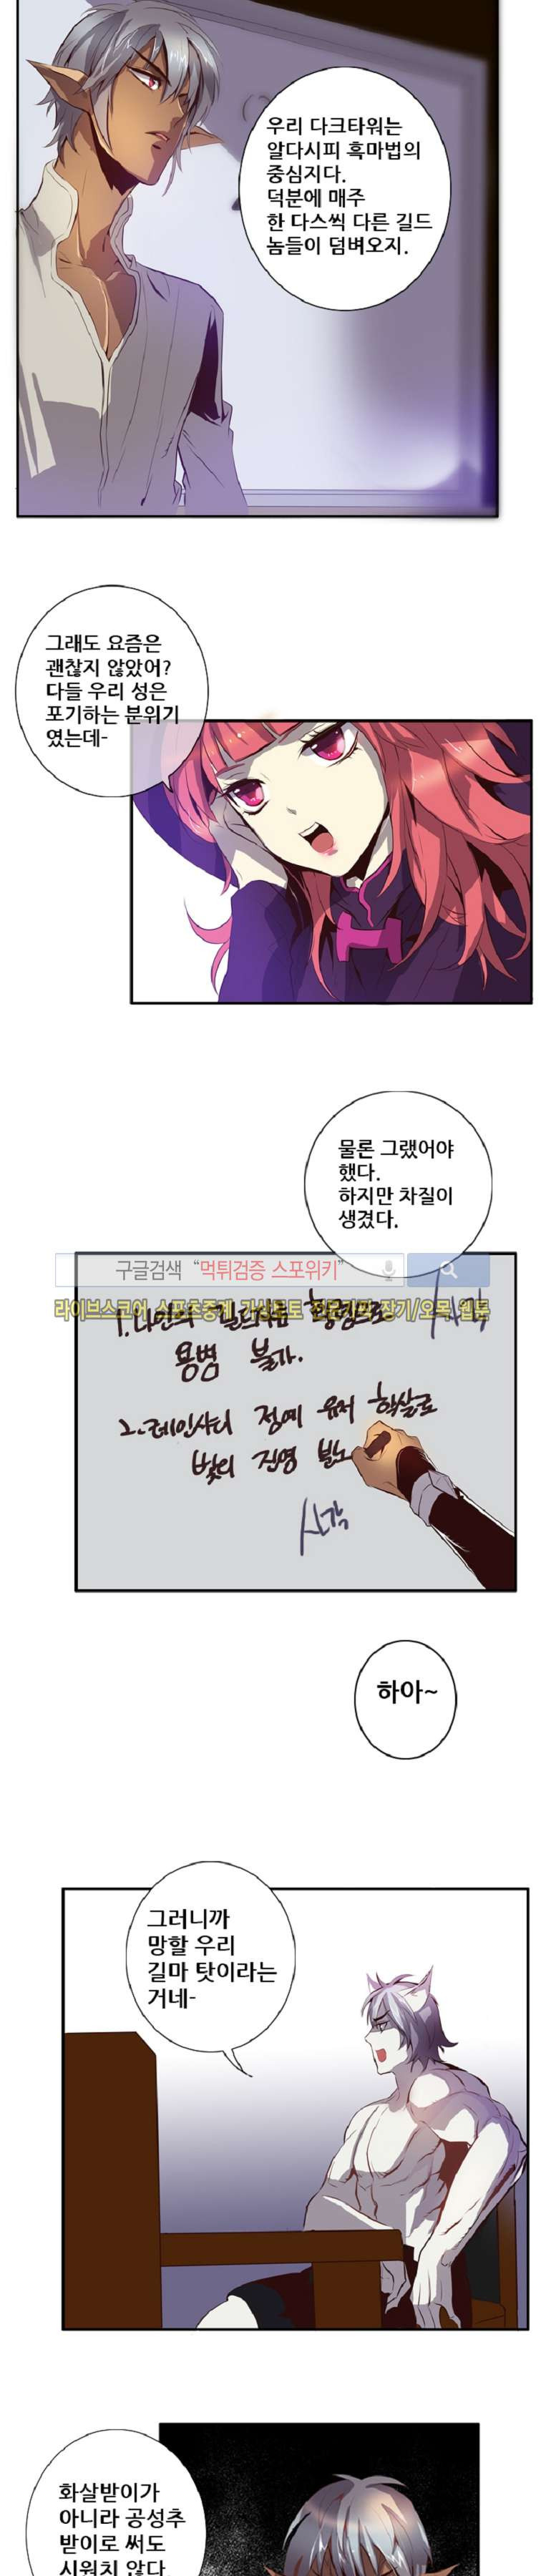 우리 다크타워는
알다시피 흑마법의
중심지다.
덕분에 매주
한 다스씩 다른 길드
놈들이 덤벼오지.
그래도 요즘은
괜찮지 않았어?
다들 우리 성은
포기하는 분위기
였는데-
물론 그랬어야
했다.
하지만 차질이
생겼다.
구글검색 “먹튀검증 스포위키”
라이브스코어 스포츠중계 가상토토 전문지표 장기/오목 웹툰
1. 나인의 횡령으로 사각
용병 불가.
2. 레인샤터 정예 유저 학살로
빛의 진영 분노
사각
하아~
그러니까
망할 우리
길마 탓이라는
거네-
화살받이가
아니라 공성추
받이로 써도
시원치 않다.